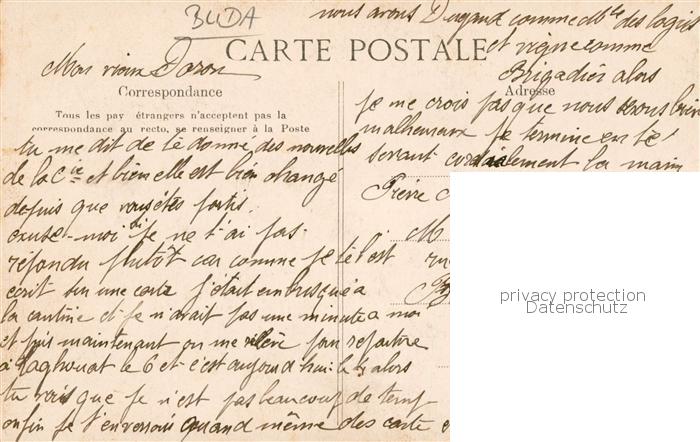 BUDA
nous avons Dugaud comme Mle des logis
CARTE POSTALE
et vigne comme
Mon vieux Doron
Brigadier alors
Correspondance
Adresse
Tous les pay étrangers n'acceptent pas la
correspondance au recto, se renseigner à la Poste
je me crois pas que nous serons bien
malheureux je termine en te
serrant cordialement la main
Pierre
M
tu me dit de te donne des nouvelles
de la Cie et bien elle est bien changé
depuis que vous êtes partis.
excuse-moi si je ne t'ai pas
répondu plutôt car comme je te l'est
écrit sur une carte j'était embusqué a
la cantine et je n'avait pas une minute a moi
et puis maintenant on me relève pour repartire
à Laghouat le 6 et c'est aujourd'hui le 4 alors
tu vois que je n'est pas beaucoup de temp
enfin je t'enverrais quand même des carte
privacy protection
Datenschutz